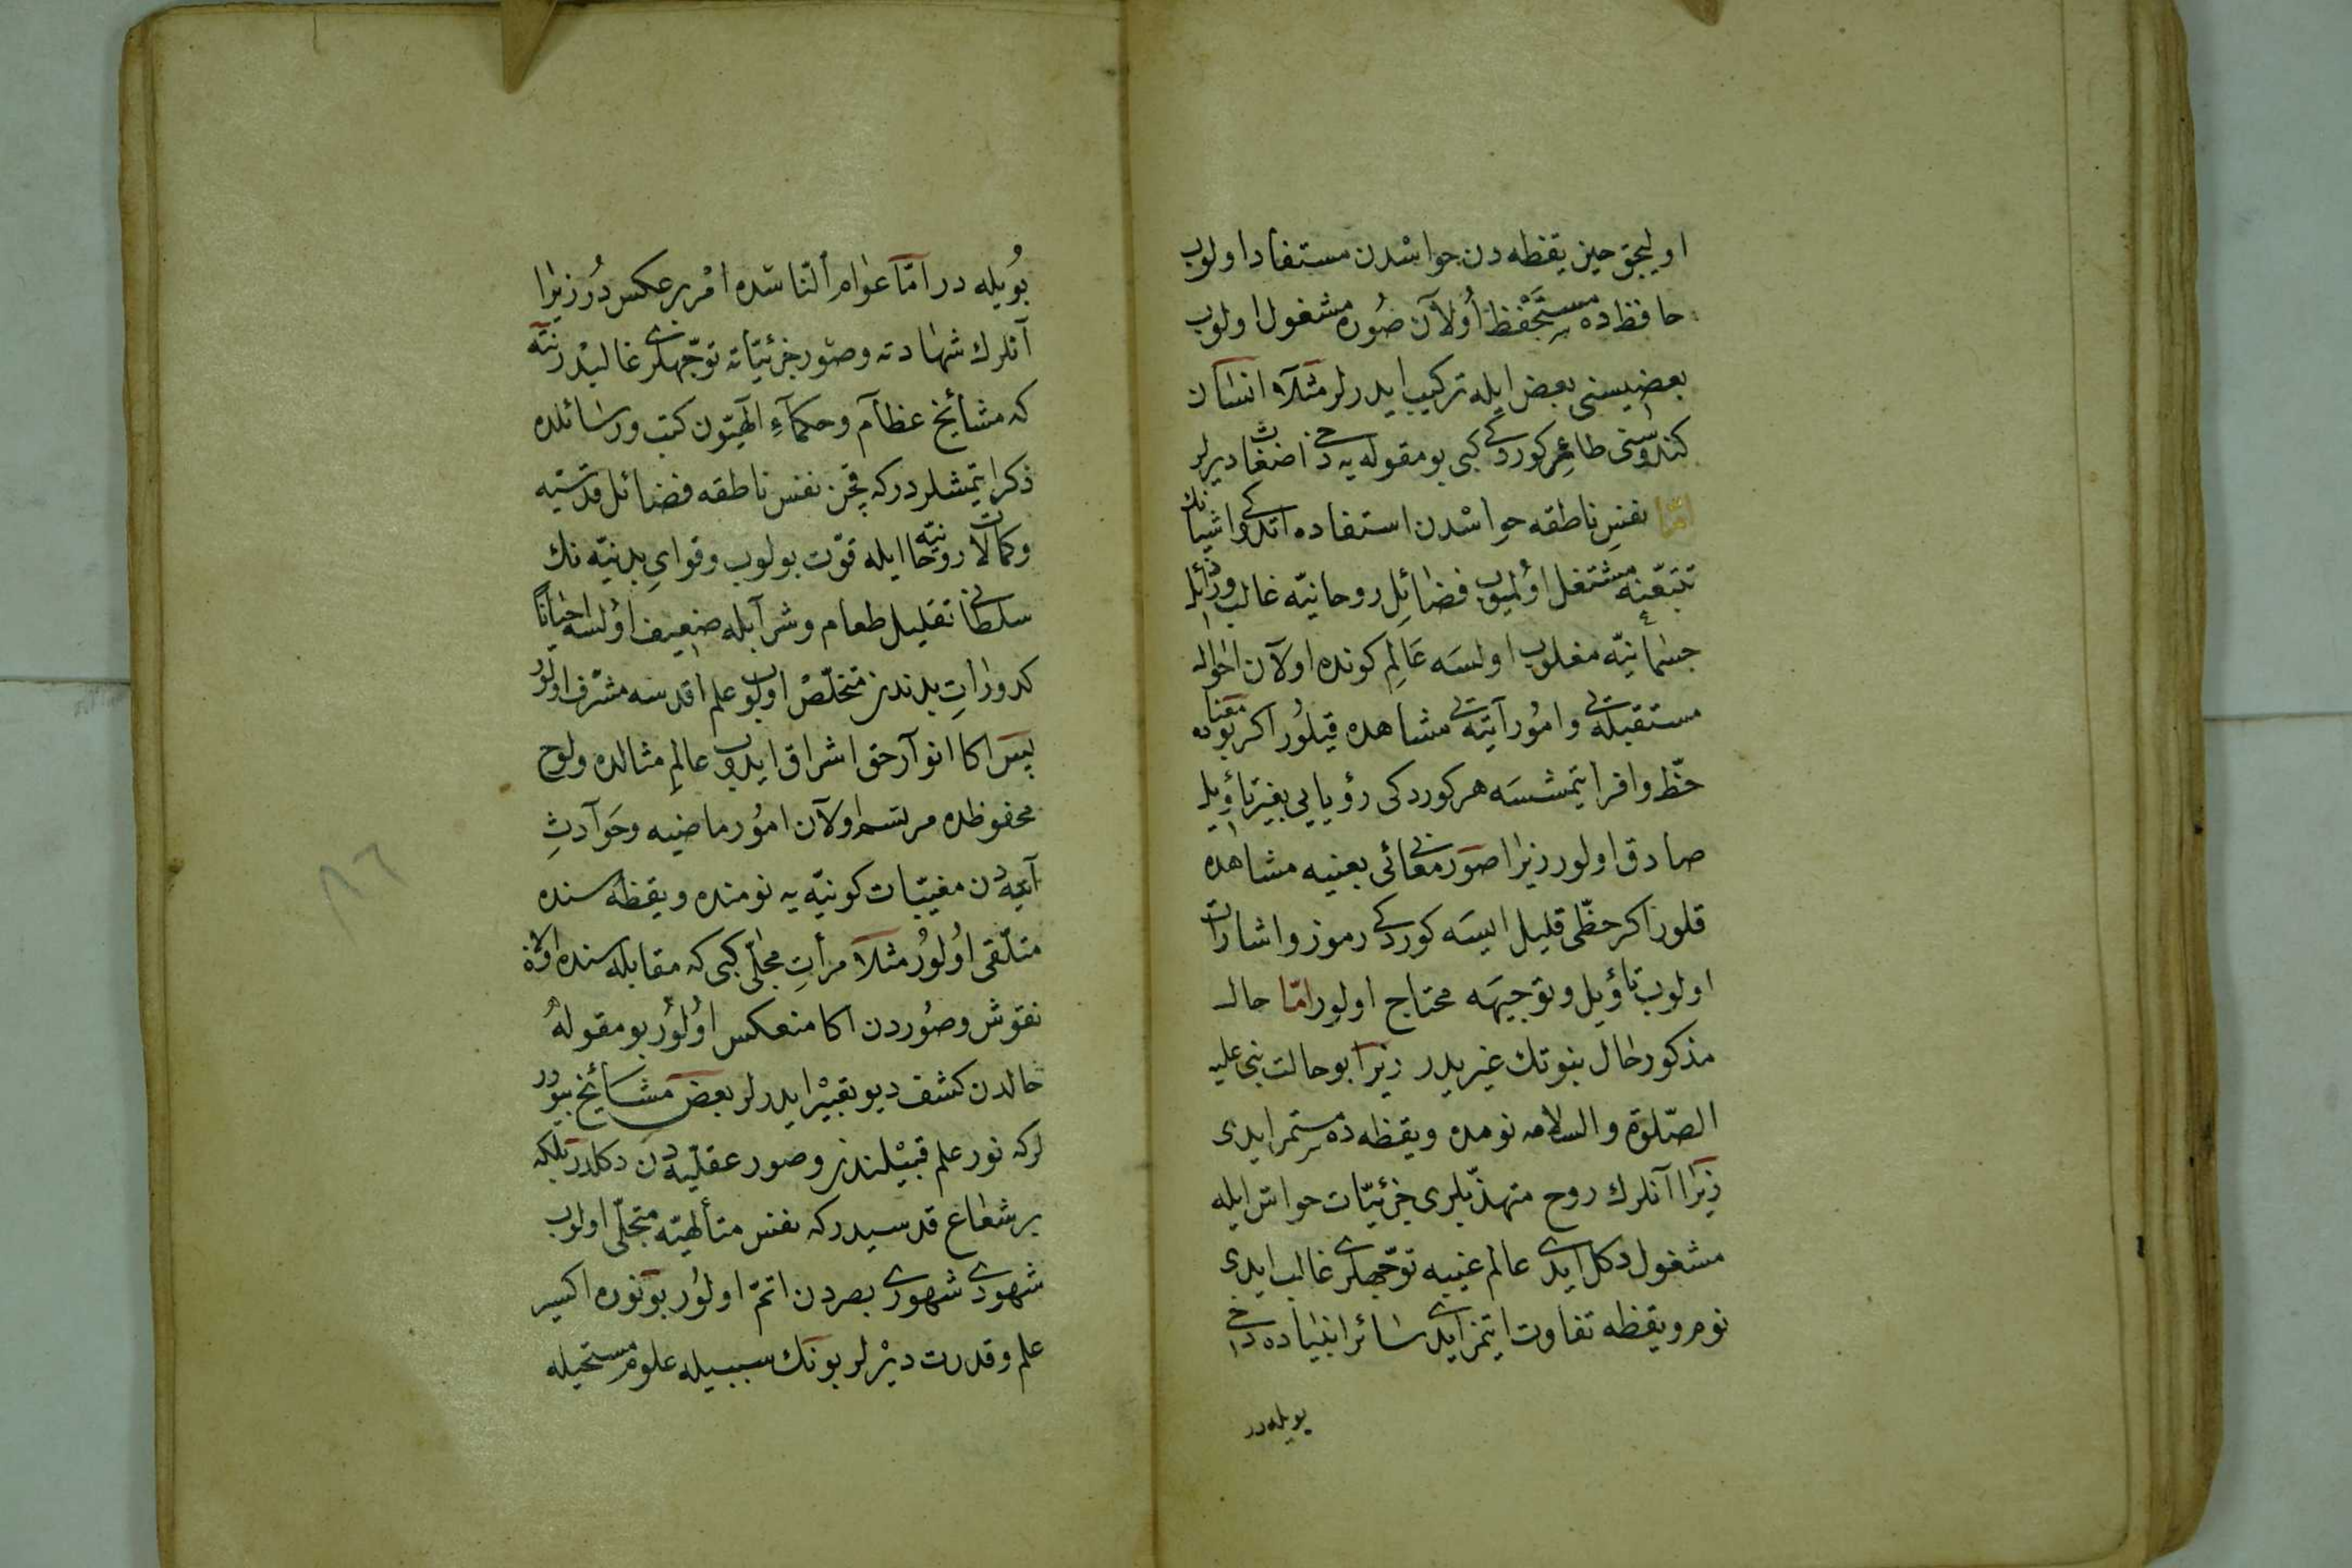 اوليجق حين يقظه دن حواسْدن مستفاد اولوب
حافظه ده مستَحْفظ اُولآن صُوره مشغول اولوب
بعضيسنى بعض ايله تركيب ايدرلر مثلآ انسان
كندوسنى طائر كوردكى كبى بو مقوله يه دخى اضغاث ديرلر
امّا نفسِ ناطقه حواسْدن استفاده اتدكى اشيانك
تتبّعنه مشتغل اوُلميوب فضائلِ روحانيّه غالب ورذائل
جسمانيّه مغلوب اولسَه عَالمِ كونده اولآن احوال
مستقبله يى وامُور آتيه يى مشاهده قيلُور اكر بو معناده
حظّ وافر ايتمشسَه هر كوردكى رؤيايى بغير تاؤيل
صادق اولور زيرا صوَر معانئى بعينه مشاهده
قلور اكر حظّى قليل ايسَه كوردكى رموز واشارات
اولوب تاؤيل وتوجيهَه محتاج اولور امّا حال
مذكور حال نبوتك غيريدر زيرا بو حالت نبى عليه
الصّلوة والسلامه نومده ويقظه ده مستمر ايدى
زيرَا آنلرك روح متهذّبلرى جزئيّات حواسّ ايله
مشغول دكل ايدى عالم غيبه توجّهلرى غالب ايدى
نوم ويقظه تفاوت ايتمز ايدى سائر انبياده دخى
بويله در
بُويله در امّا عوام النّاسده امْر برعكس دُر زيرا
آنلرك شهادته وصور جزئيّاته توجّهلرى غالبْدر نته
كه مشائخ عظآم وحكمآءِ الهيّون كتب ورسائلده
ذكر ايتمشلر دركه قچن نفس ناطقه فضائل قدسيّه
وكمالات روحانيّه ايله قوّت بولوب وقواىِ بدنيّه نك
سلطانى تقليل طعام وشرآبله ضعيف اوُلسه احيانًا
كدوراتِ بدندن متخلّصْ اولوب علم اقدسه مشرّف اولور
پس اكا انوآر حق اشراق ايدوب عالمِ مثالده ولوح
محفوظده مرتسم اولآن امُور ماضيه وحَوآدثِ
آتيه دن مغيّبات كونيّه يه نومنده ويقظه سنده
متلّقى اوُلوُر مثلآ مرأتِ مجلّى كبى كه مقابله سنده اولان
نقوش وصُوردن اكا منعكس اوُلوُر بو مقوله
حالدن كشف ديو تعبيْر ايدرلر بعض مشَايخ بيورر
لركه نور علم قبيْلندن وصور عقليّه دن دكلدر بلكه
بر شعاع قدسيدركه نفس متألهيّه متجلّى اولوب
شهودى شهودى بصردن اتمّ اولوُر بو نوره اكسير
علم وقدرت ديْرلر بونك سببيله علوم مستحيله